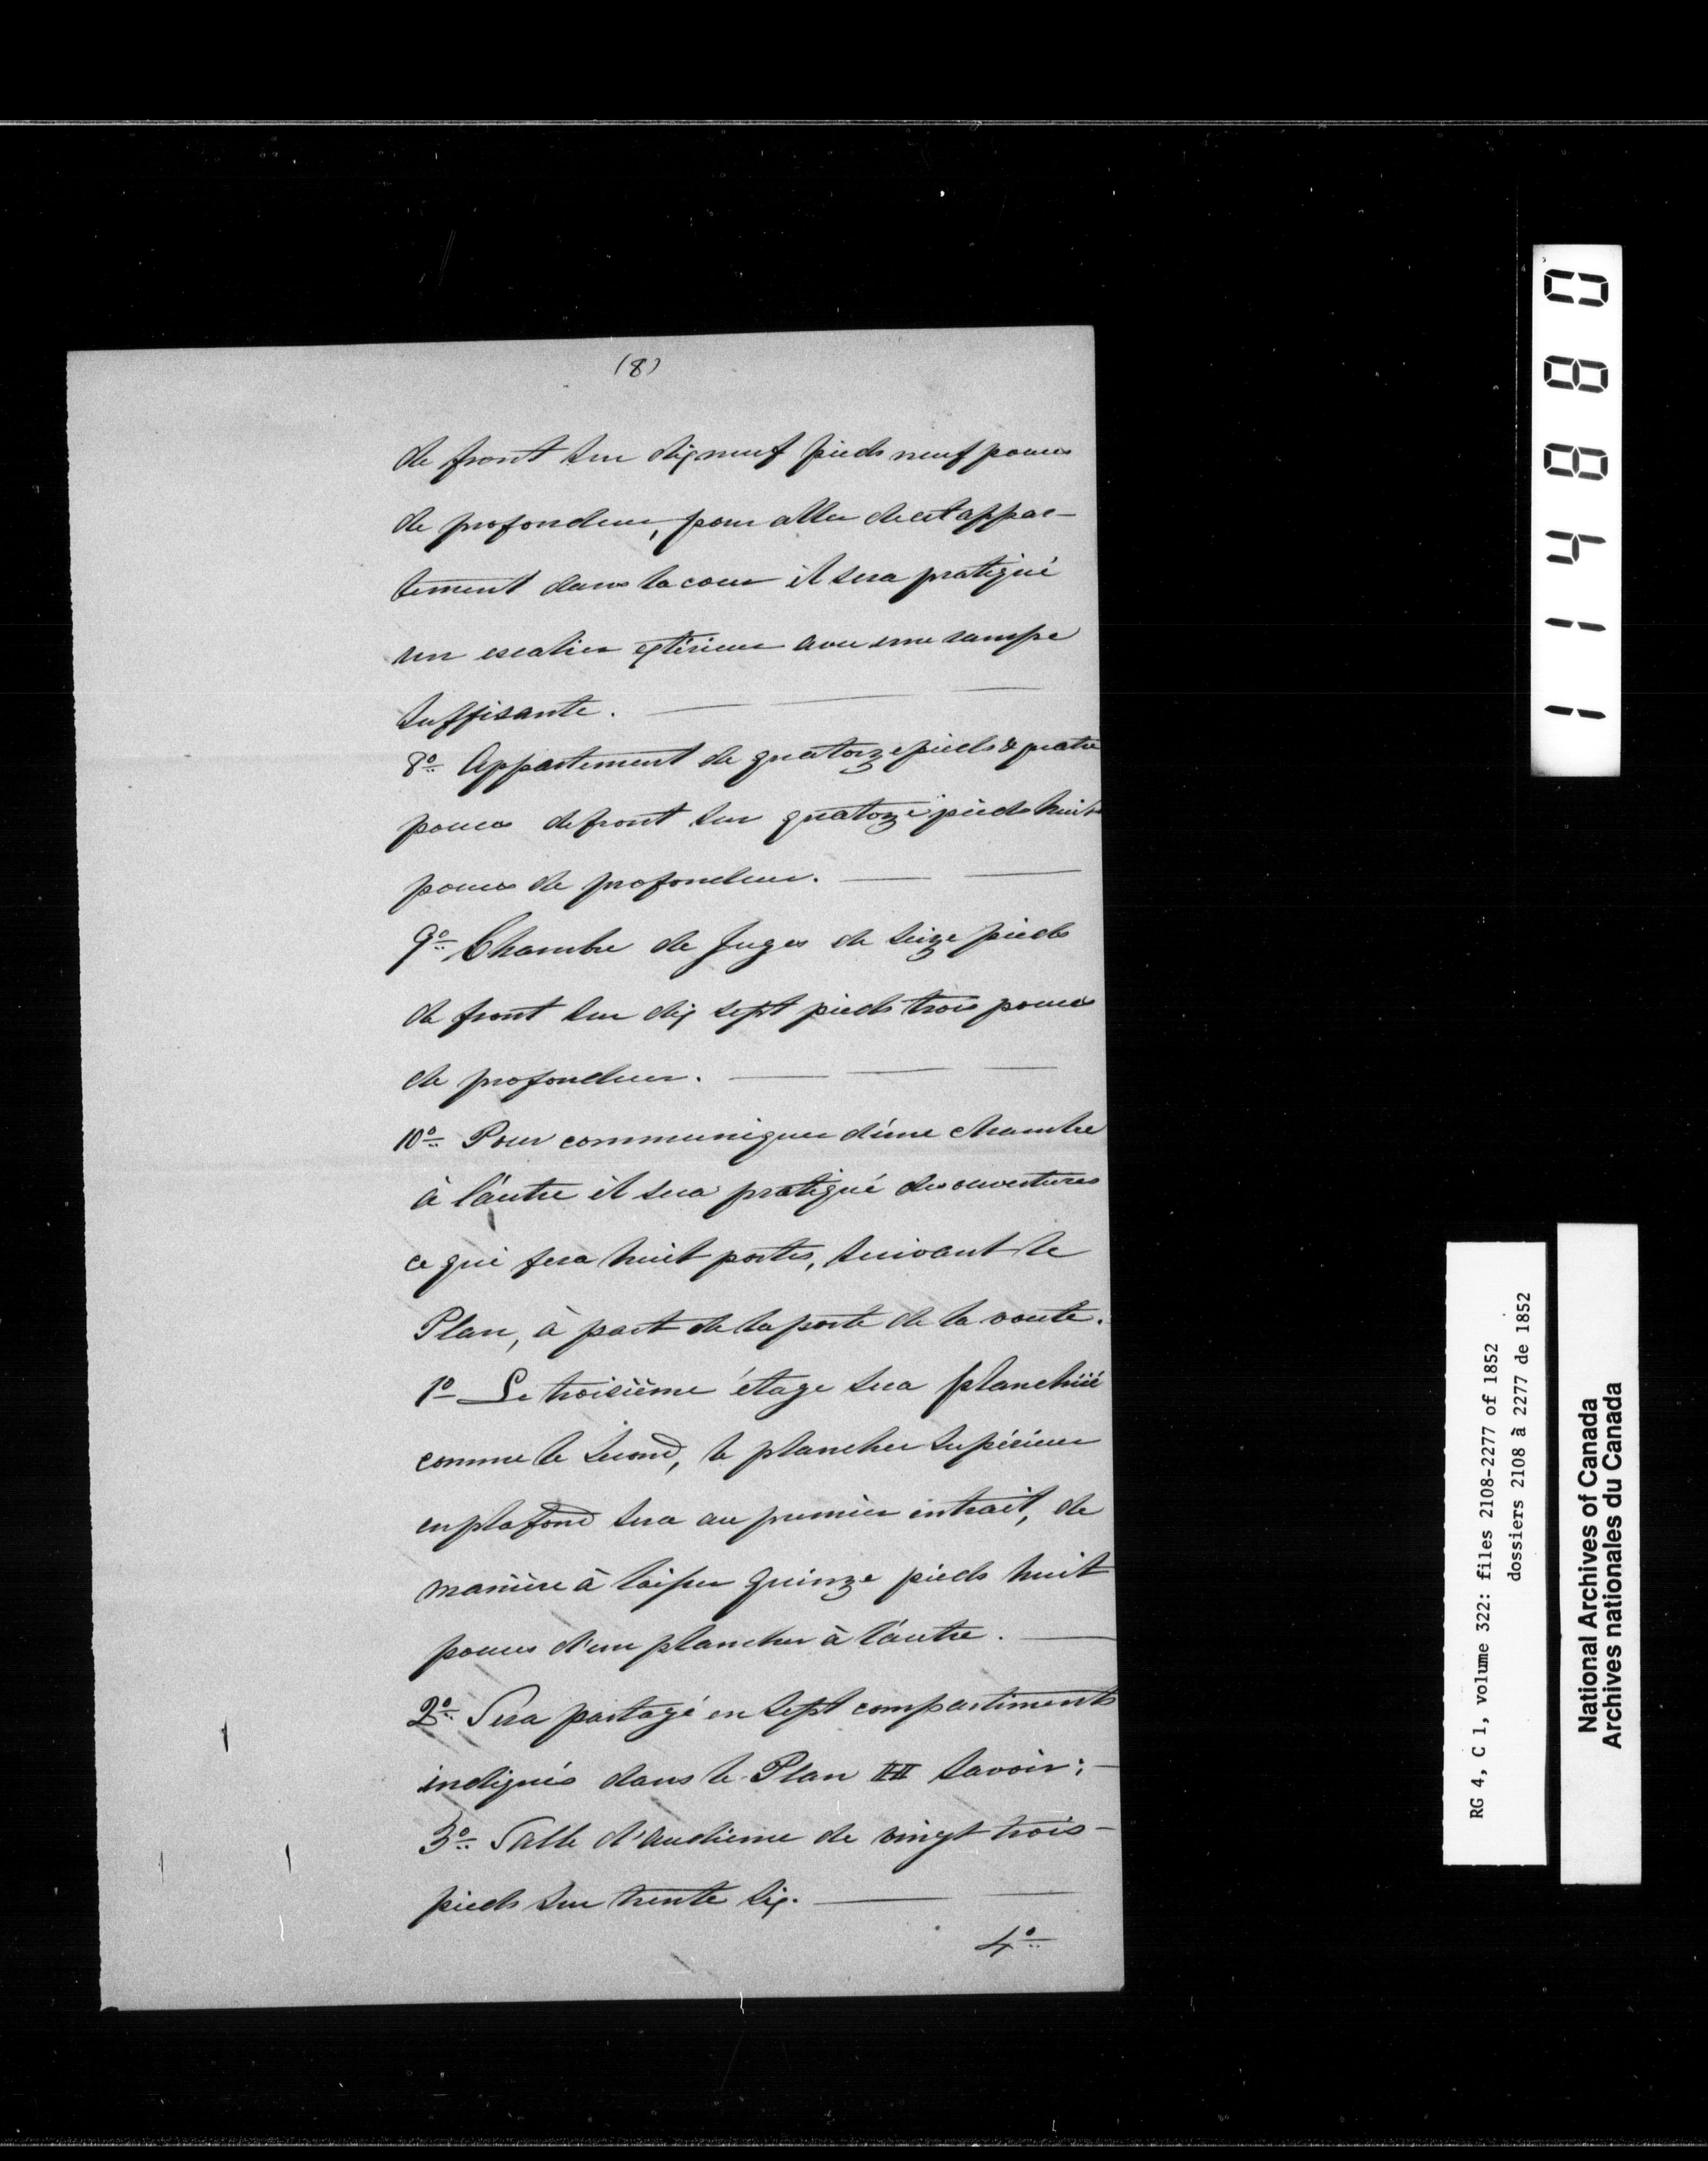 (8)
de front sur dix neuf pieds neuf pouces
de profondeur, pour aller de cet appar-
tement dans la cour il sera pratiqué
un escalier extérieur avec une rampe
suffisante.
8o Appartement de quatorze pieds & quatre
pouces de front sur quatorze pieds huit
pouces de profondeur.
9o Chambre de Juges de seize pieds
de front sur dix sept pieds trois pouces
de profondeur.
10o Pour communiquer d'une chambre
à l'autre il sera pratiqué des ouvertures
ce qui fera huit portes, suivant le
Plan, à part de la porte de la voute.
1o Le troisième étage sera planchéié
comme le second, le plancher supérieur
en plafond sera au premier entrait, de
manière à laisser quinze pieds huit
pouces d'un plancher à l'autre.
2o Sera partagé en sept compartiments
indiqués dans le Plan savoir:
3o Salle d'audience de vingt trois
pieds sur trente six.
4o
114880
RG 4, C 1, volume 322: files 2108-2277 of 1852
dossiers 2108 à 2277 de 1852
National Archives of Canada
Archives nationales du Canada